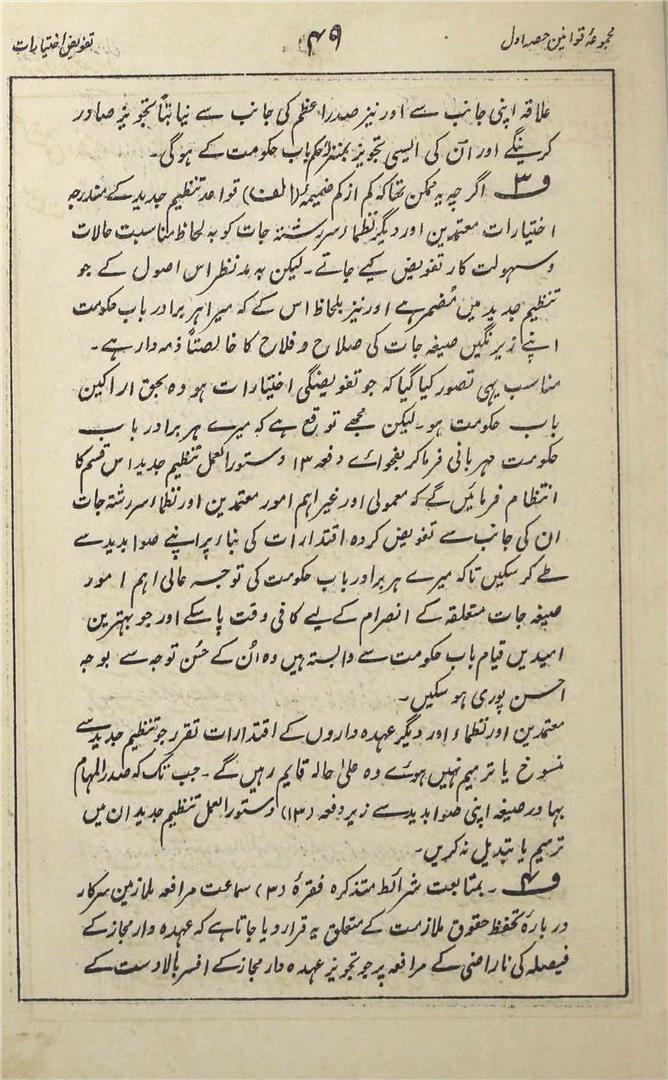 مجموعۂ قوانین حصہ اول
۴۹
تفویض اختیارات
علاقہ اپنی جانب سے اور نیز صدر اعظم کی جانب سے نیابتاً تجویز صادر
کرینگے اور ان کی ایسی تجویز بمنزلہ حکم باب حکومت کے ہوگی۔
ف۳ اگرچہ یہ ممکن تھا کہ کم از کم ضمیمۂ (الف) قواعد تنظیم جدید کے مندرجہ
اختیارات معتمدین اور دیگر نظماء سررشتہ جات کو بہ لحاظ مناسبت حالات
و سہولت کار تفویض کیے جاتے۔ لیکن بہ مدنظر اس اصول کے جو
تنظیم جدید میں مُضمر ہے اور نیز بلحاظ اس کے کہ میرا ہر برادر باب حکومت
اپنے زیر نگیں صیغہ جات کی صلاح و فلاح کا خالصتاً ذمہ دار ہے۔
مناسب یہی تصور کیا گیا کہ جو تفویضگی اختیارات ہو وہ بحق اراکین
باب حکومت ہو۔ لیکن مجھے توقع ہے کہ میرے ہر برادر باب
حکومت مہربانی فرما کر بفحوائے دفعہ ۱۳ دستور العمل تنظیم جدید اس قسم کا
انتظام فرمائیں گے کہ معمولی اور غیر اہم امور معتمدین اور نظماء سررشتہ جات
ان کی جانب سے تفویض کردہ اقتدارات کی بناء پر اپنے صوابدید سے
طے کر سکیں تاکہ میرے ہر برادر باب حکومت کی توجہ عالی اہم امور
صیغہ جات متعلقہ کے انصرام کے لیے کافی وقت پا سکے اور جو بہترین
امیدیں قیام باب حکومت سے وابستہ ہیں وہ اُن کے حسُن توجہ سے بوجہ
احسن پوری ہو سکیں۔
معتمدین اور نظماء اور دیگر عہدہ داروں کے اقتدارات تقرر جو تنظیم جدید سے
منسوخ یا ترمیم نہیں ہوئے وہ علیٰ حالہ قایم رہیں گے۔ جب تک کہ صدر المہام
بہادر صیغہ اپنی صوابدید سے زیر دفعہ (۱۳) دستور العمل تنظیم جدید ان میں
ترمیم یا تبدیل نہ کریں۔
ف۴ ۔ بمتابعت شرائط متذکرہ فقرۂ (۳) سماعت مرافعہ ملازمین سرکار
دربارۂ تحفظ حقوق ملازمت کے متعلق یہ قرار دیا جاتا ہے کہ عہدہ دار مجاز کے
فیصلہ کی ناراضی کے مرافعہ پر جو تجویز عہدہ دار مجاز کے افسر بالادست کے